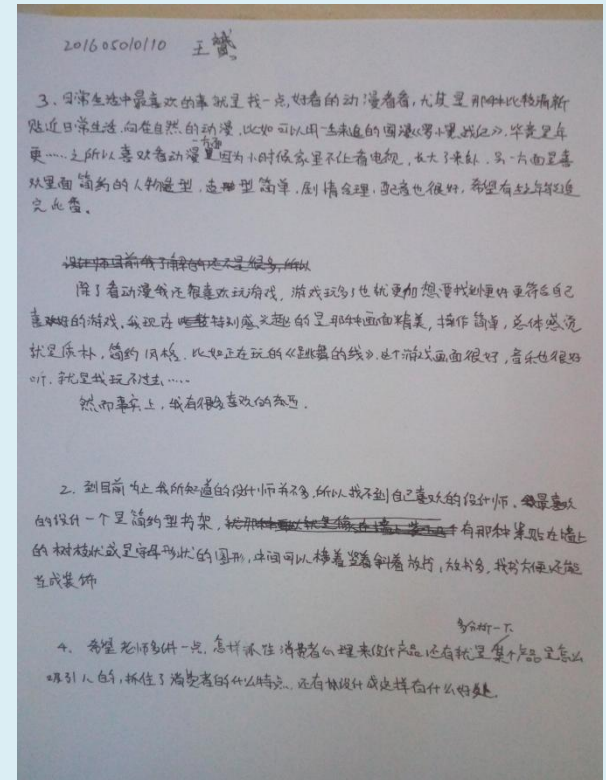 201605010110 王赟
3. 日常生活中最喜欢的事就是找一点,好看的动漫看看,尤其是那种比较清新
贴近日常生活,向往自然的动漫,比如可以用一生来追的国漫《罗小黑战记》,毕竟是年
更……之所以喜欢看动漫一方面是因为小时候家里不让看电视,长大了来补,另一方面是喜
欢里面简约的人物造型,造型简单,剧情合理,配音也很好,希望有生之年能追
完此番。
设计师目前我了解的还不是很多,所以
除了看动漫我还很喜欢玩游戏,游戏玩多了也就更加想要找到更好更符合自己
喜好的游戏,我现在特别感兴趣的是那种画面精美,操作简单,总体感觉
就是质朴,简约风格,比如正在玩的《跳舞的线》,这个游戏画面很好,音乐也很好
听,就是我玩不过去……
然而事实上,我有很多喜欢的东西.
2. 到目前为止我所知道的设计师并不多,所以我找不到自己喜欢的设计师.最喜欢
的设计一个是简约型书架,有那种紧贴在墙上
的树枝状或是字母形状的图形,中间可以横着竖着斜着放书,放书多,找书方便还能
当成装饰
多分析一下
4. 希望老师多讲一点,怎样抓住消费者心理来设计产品还有就是某个产品是怎么
吸引人的,抓住了消费者的什么特点,还有林设计成这样有什么好处.